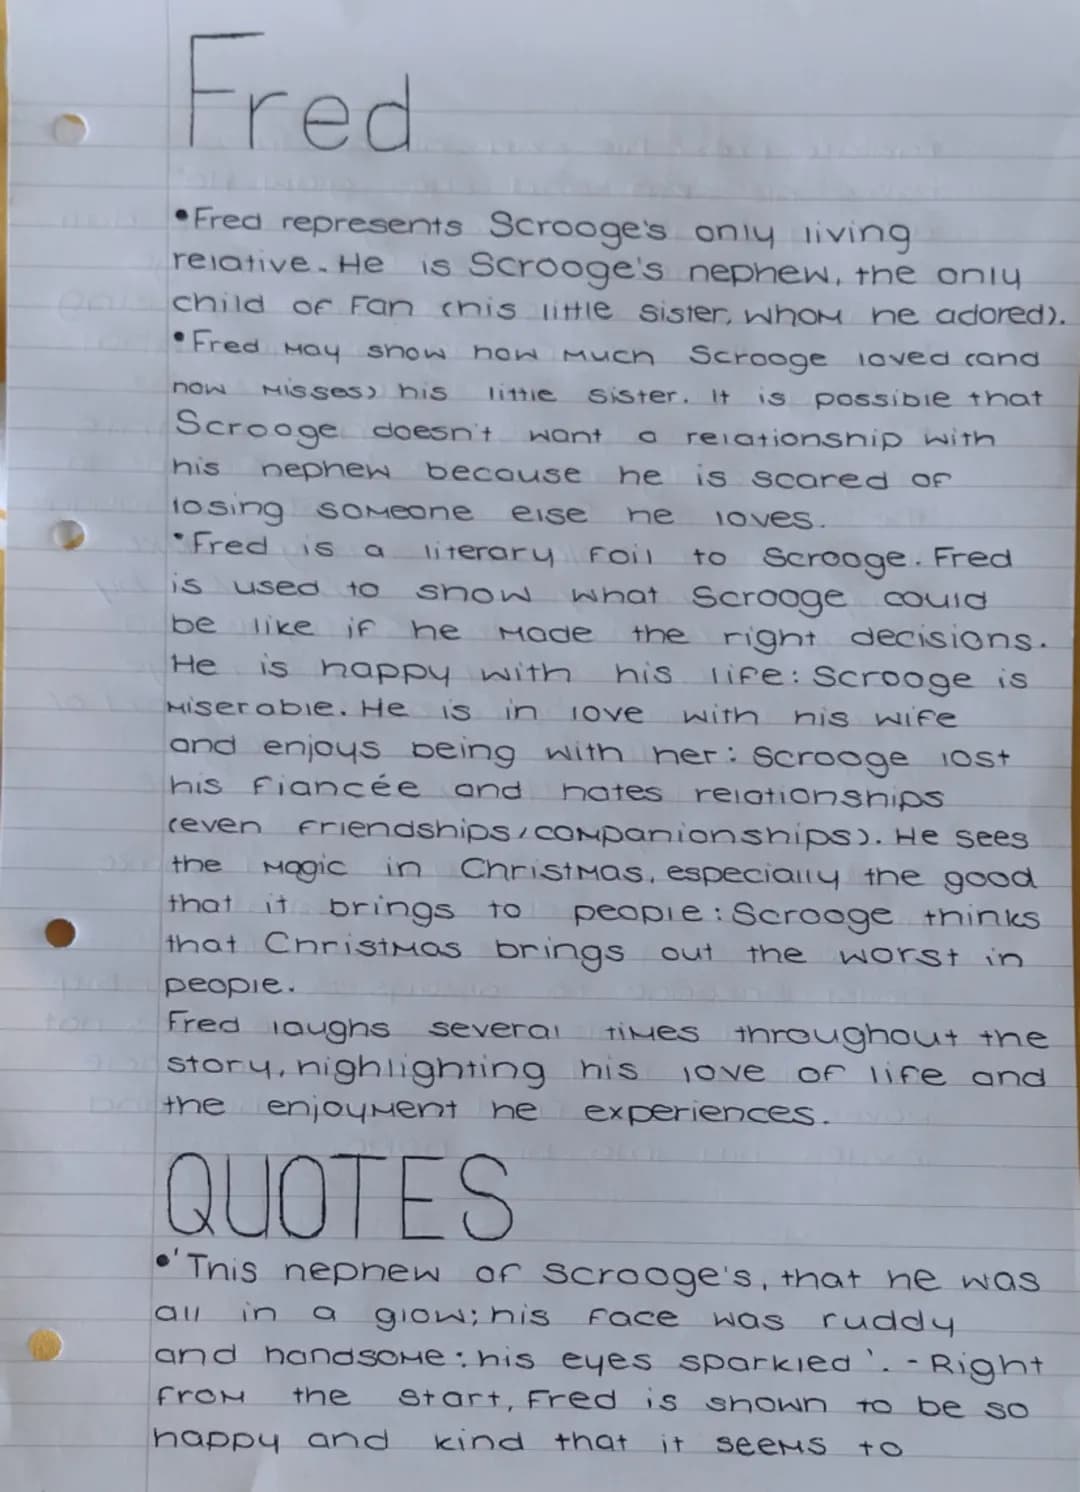 Fred
•Fred represents Scrooge's only living
relative. He is Scrooge's nephew, the only
child of Fan (his little sister, whom he adored).
•Fred may show how much Scrooge loved (and
now misses) his little sister. It is possible that
Scrooge doesn't want a relationship with
his nephew because he is scared of
losing someone else he loves.
•Fred is a literary foil to Scrooge. Fred
is used to show what Scrooge could
be like if he made the right decisions.
He is happy with his life: Scrooge is
miserable. He is in love with his wife
and enjoys being with her: Scrooge lost
his fiancée and hates relationships
(even friendships/companionships). He sees
the magic in Christmas, especially the good
that it brings to people: Scrooge thinks
that Christmas brings out the worst in
people.
Fred laughs several times throughout the
story, highlighting his love of life and
the enjoyment he experiences.
QUOTES
•'This nephew of Scrooge's, that he was
all in a glow; his face was ruddy
and handsome: his eyes sparkled'. - Right
from the start, Fred is shown to be so
happy and kind that it seems to